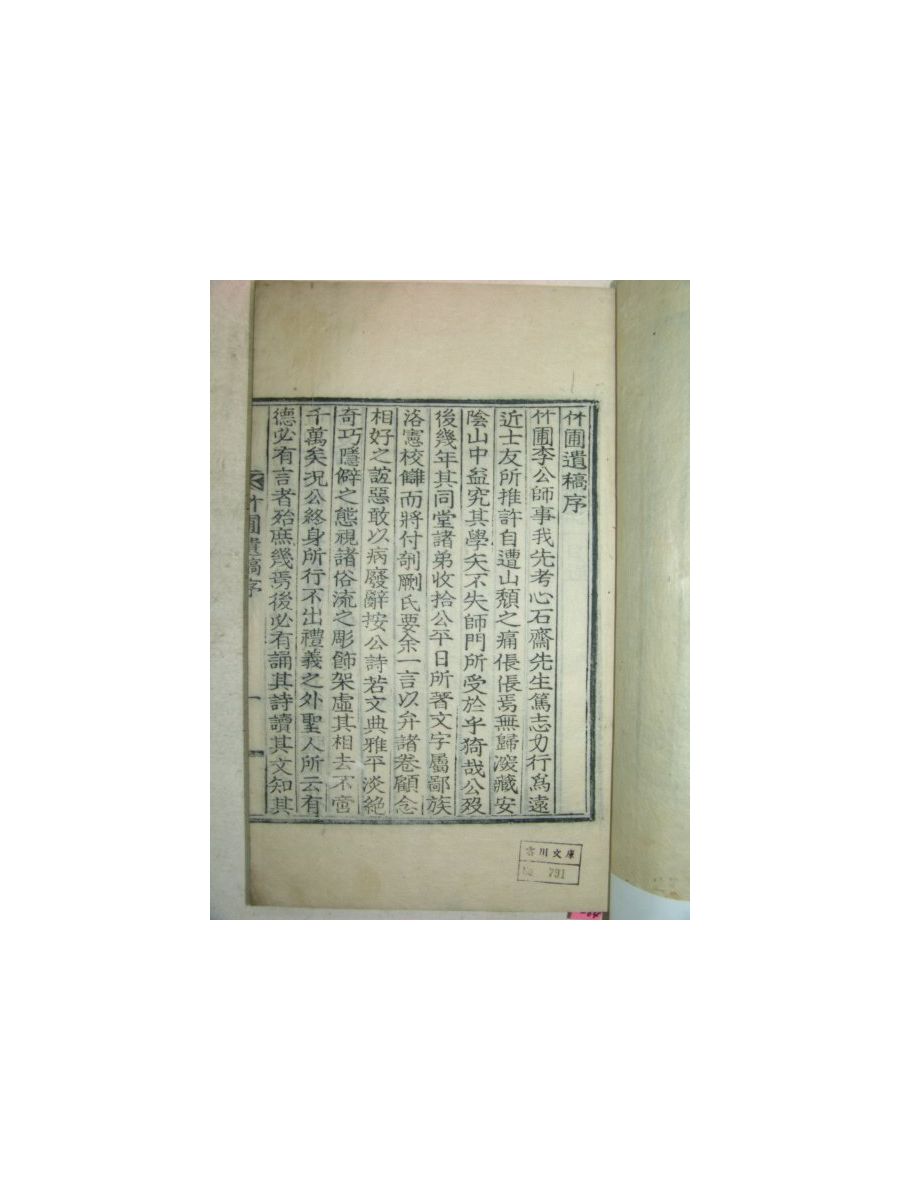 竹圃遺稿序
竹圃李公師事我先考心石齋先生篤志力行爲遠
近士友所推許自遭山頹之痛倀倀焉無歸深藏安
陰山中益究其學矢不失師門所受於乎猗哉公歿
後幾年其同堂諸弟收拾公平日所著文字屬鄙族
洛憲校讎而將付剞劂氏要余一言以弁諸卷顧念
相好之誼惡敢以病廢辭按公詩若文典雅平淡絶
奇巧隱僻之態視諸俗流之彫飾架虛其相去不啻
千萬矣况公終身所行不出禮義之外聖人所云有
德必有言者殆庶幾焉後必有誦其詩讀其文知其
竹圃遺稿序 一
雲川文庫
No. 791